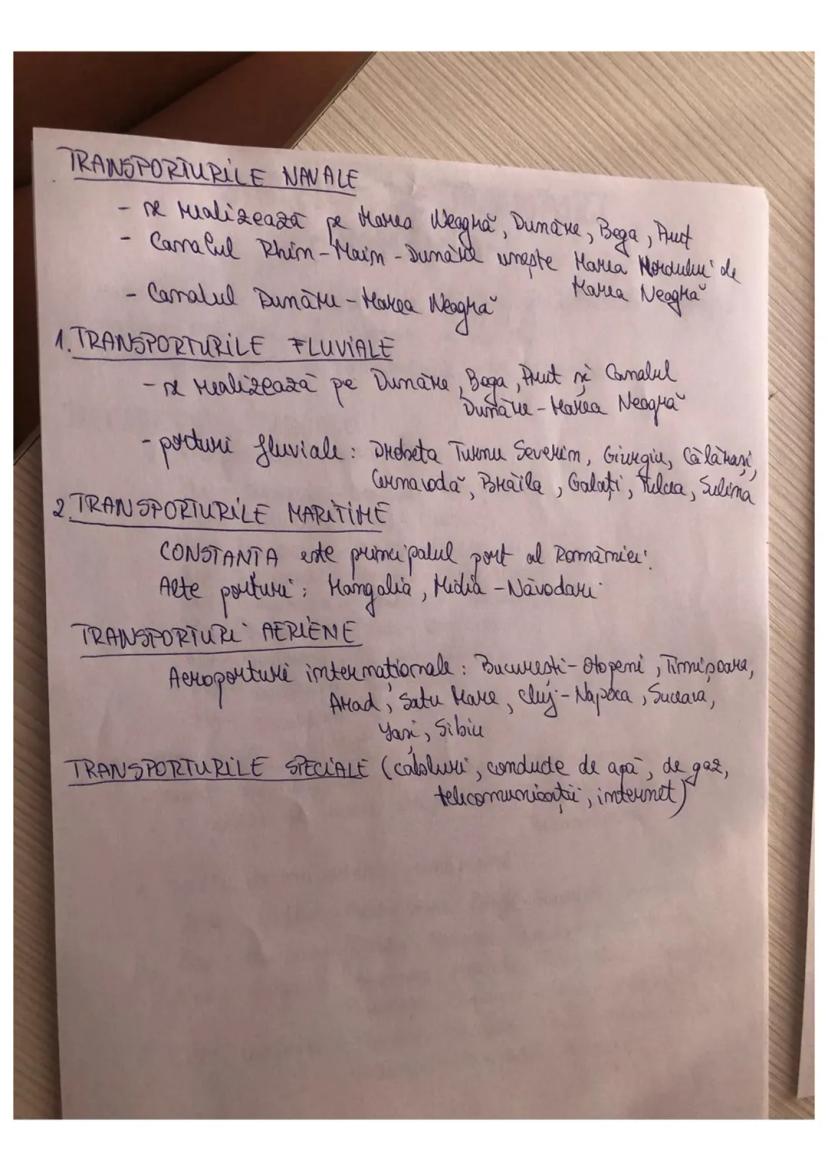 TRANSPORTURILE NAVALE
- se realizează pe Marea Neagră, Dunăre, Bega, Prut
- Canalul Rhin-Main-Dunăre unește Marea Nordului de
Marea Neagră
- Canalul Dunăre-Marea Neagră
1. TRANSPORTURILE FLUVIALE
- se realizează pe Dunăre, Bega, Prut și Canalul
Dunăre-Marea Neagră
- porturi fluviale: Drobeta Turnu Severin, Giurgiu, Călărași,
Cernavodă, Brăila, Galați, Tulcea, Sulina
2. TRANSPORTURILE MARITIME
CONSTANTA este principalul port al României.
Alte porturi: Mangalia, Midia-Năvodari
TRANSPORTURI AERIENE
Aeroporturi internationale: București-Otopeni, Timișoara,
Arad, Satu Mare, Cluj-Napoca, Suceava,
Iași, Sibiu
TRANSPORTURILE SPECIALE (cabluri, conducte de apă, de gaz,
telecomunicații, internet)